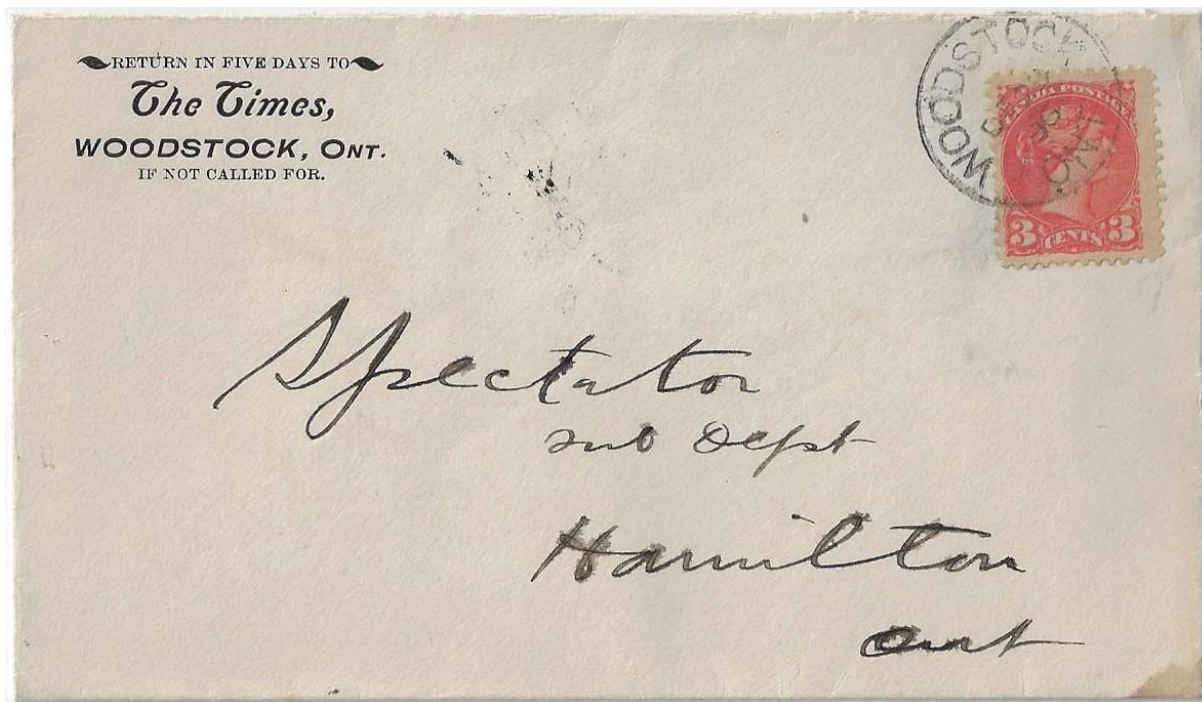 RETURN IN FIVE DAYS TO
The Times,
WOODSTOCK, ONT.
IF NOT CALLED FOR.
WOODSTOCK
ONT
CANADA POSTAGE
3 CENTS 3
Spectator
Sub Dept
Hamilton
Ont